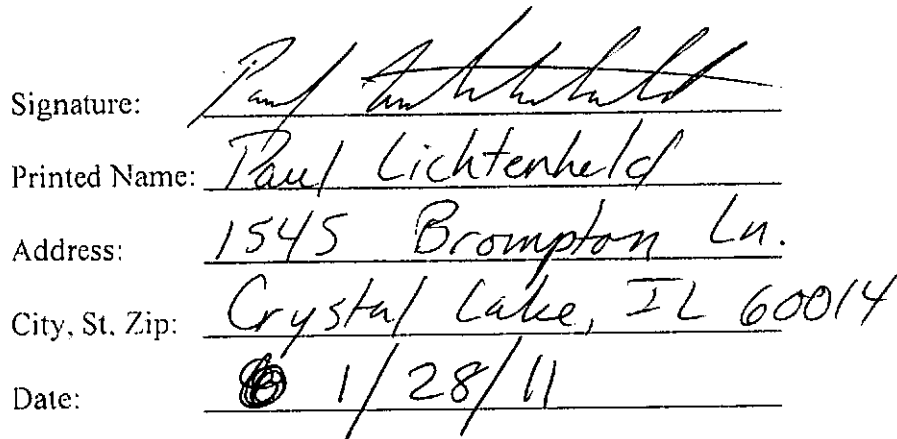 Signature: Paul
Printed Name: Paul Lichtenheld
Address: 1545 Brompton Ln.
City, St. Zip: Crystal Lake, IL 60014
Date: 1/28/11